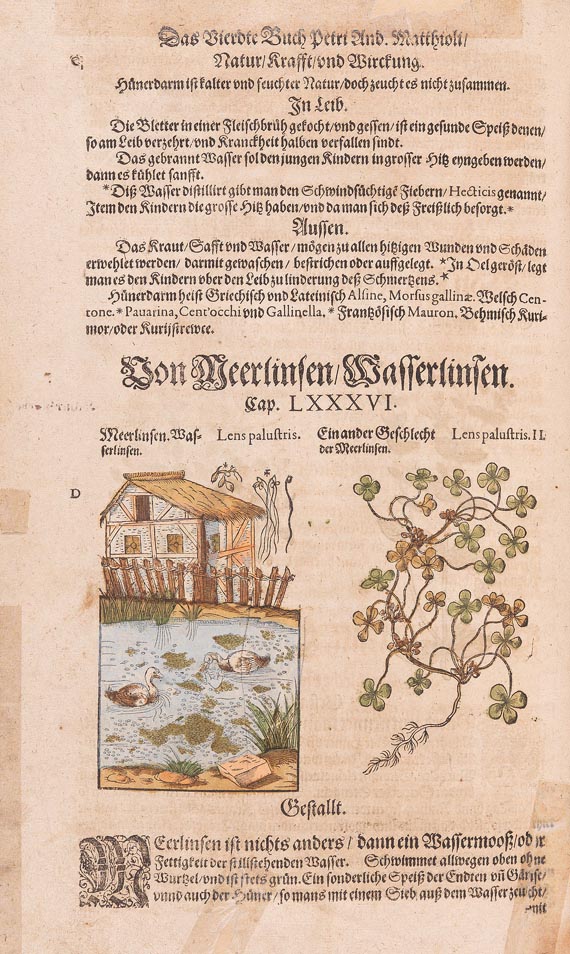 Das Vierdte Buch Petri And. Matthioli/
Natur/Krafft/vnd Wirckung.
Hünerdarm ist kalter vnd feuchter Natur/doch zeucht es nicht zusammen.
In Leib.
Die Bletter in einer Fleischbrüh gekocht/vnd gessen/ ist ein gesunde Speiß denen/
so am Leib verzehrt/vnd Kranckheit halben verfallen sindt.
Das gebrannt Wasser sol den jungen Kindern in grosser Hitz eyngeben werden/
dann es kühlet sanfft.
*Diß Wasser distillirt gibt man den Schwindsüchtigē Fiebern/ Hecticis genannt/
Item den Kindern die grosse Hitz haben/vnd da man sich deß Freißlich besorgt.*
Aussen.
Das Kraut/Safft vnd Wasser/ mögen zu allen hitzigen Wunden vnd Schäden
erwehlet werden/ darmit gewaschen/ bestrichen oder auffgelegt. *In Oel geröst/legt
man es den Kindern vber den Leib zu linderung deß Schmertzens.*
Hünerdarm heist Griechisch vnd Lateinisch Alsine, Morsus gallinæ. Welsch Cen-
tone.* Pauarina, Cent'occhi vnd Gallinella. * Frantzösisch Mauron. Behmisch Kuri-
mor/oder Kurijstrewce.
Von Meerlinsen/Wasserlinsen.
Cap. LXXXVI.
Meerlinsen. Was- Lens palustris. Ein ander Geschlecht Lens palustris. II.
serlinsen. der Meerlinsen.
D
Gestallt.
MEerlinsen ist nichts anders/ dann ein Wassermooß/oder
Fettigkeit der stillstehenden Wasser. Schwimmet allwegen oben ohne
Wurtzel/vnd ist stets grün. Ein sonderliche Speiß der Endten vñ Gänse/
vnnd auch der Hüner/ so mans mit einem Sieb auß dem Wasser zeucht/
mit